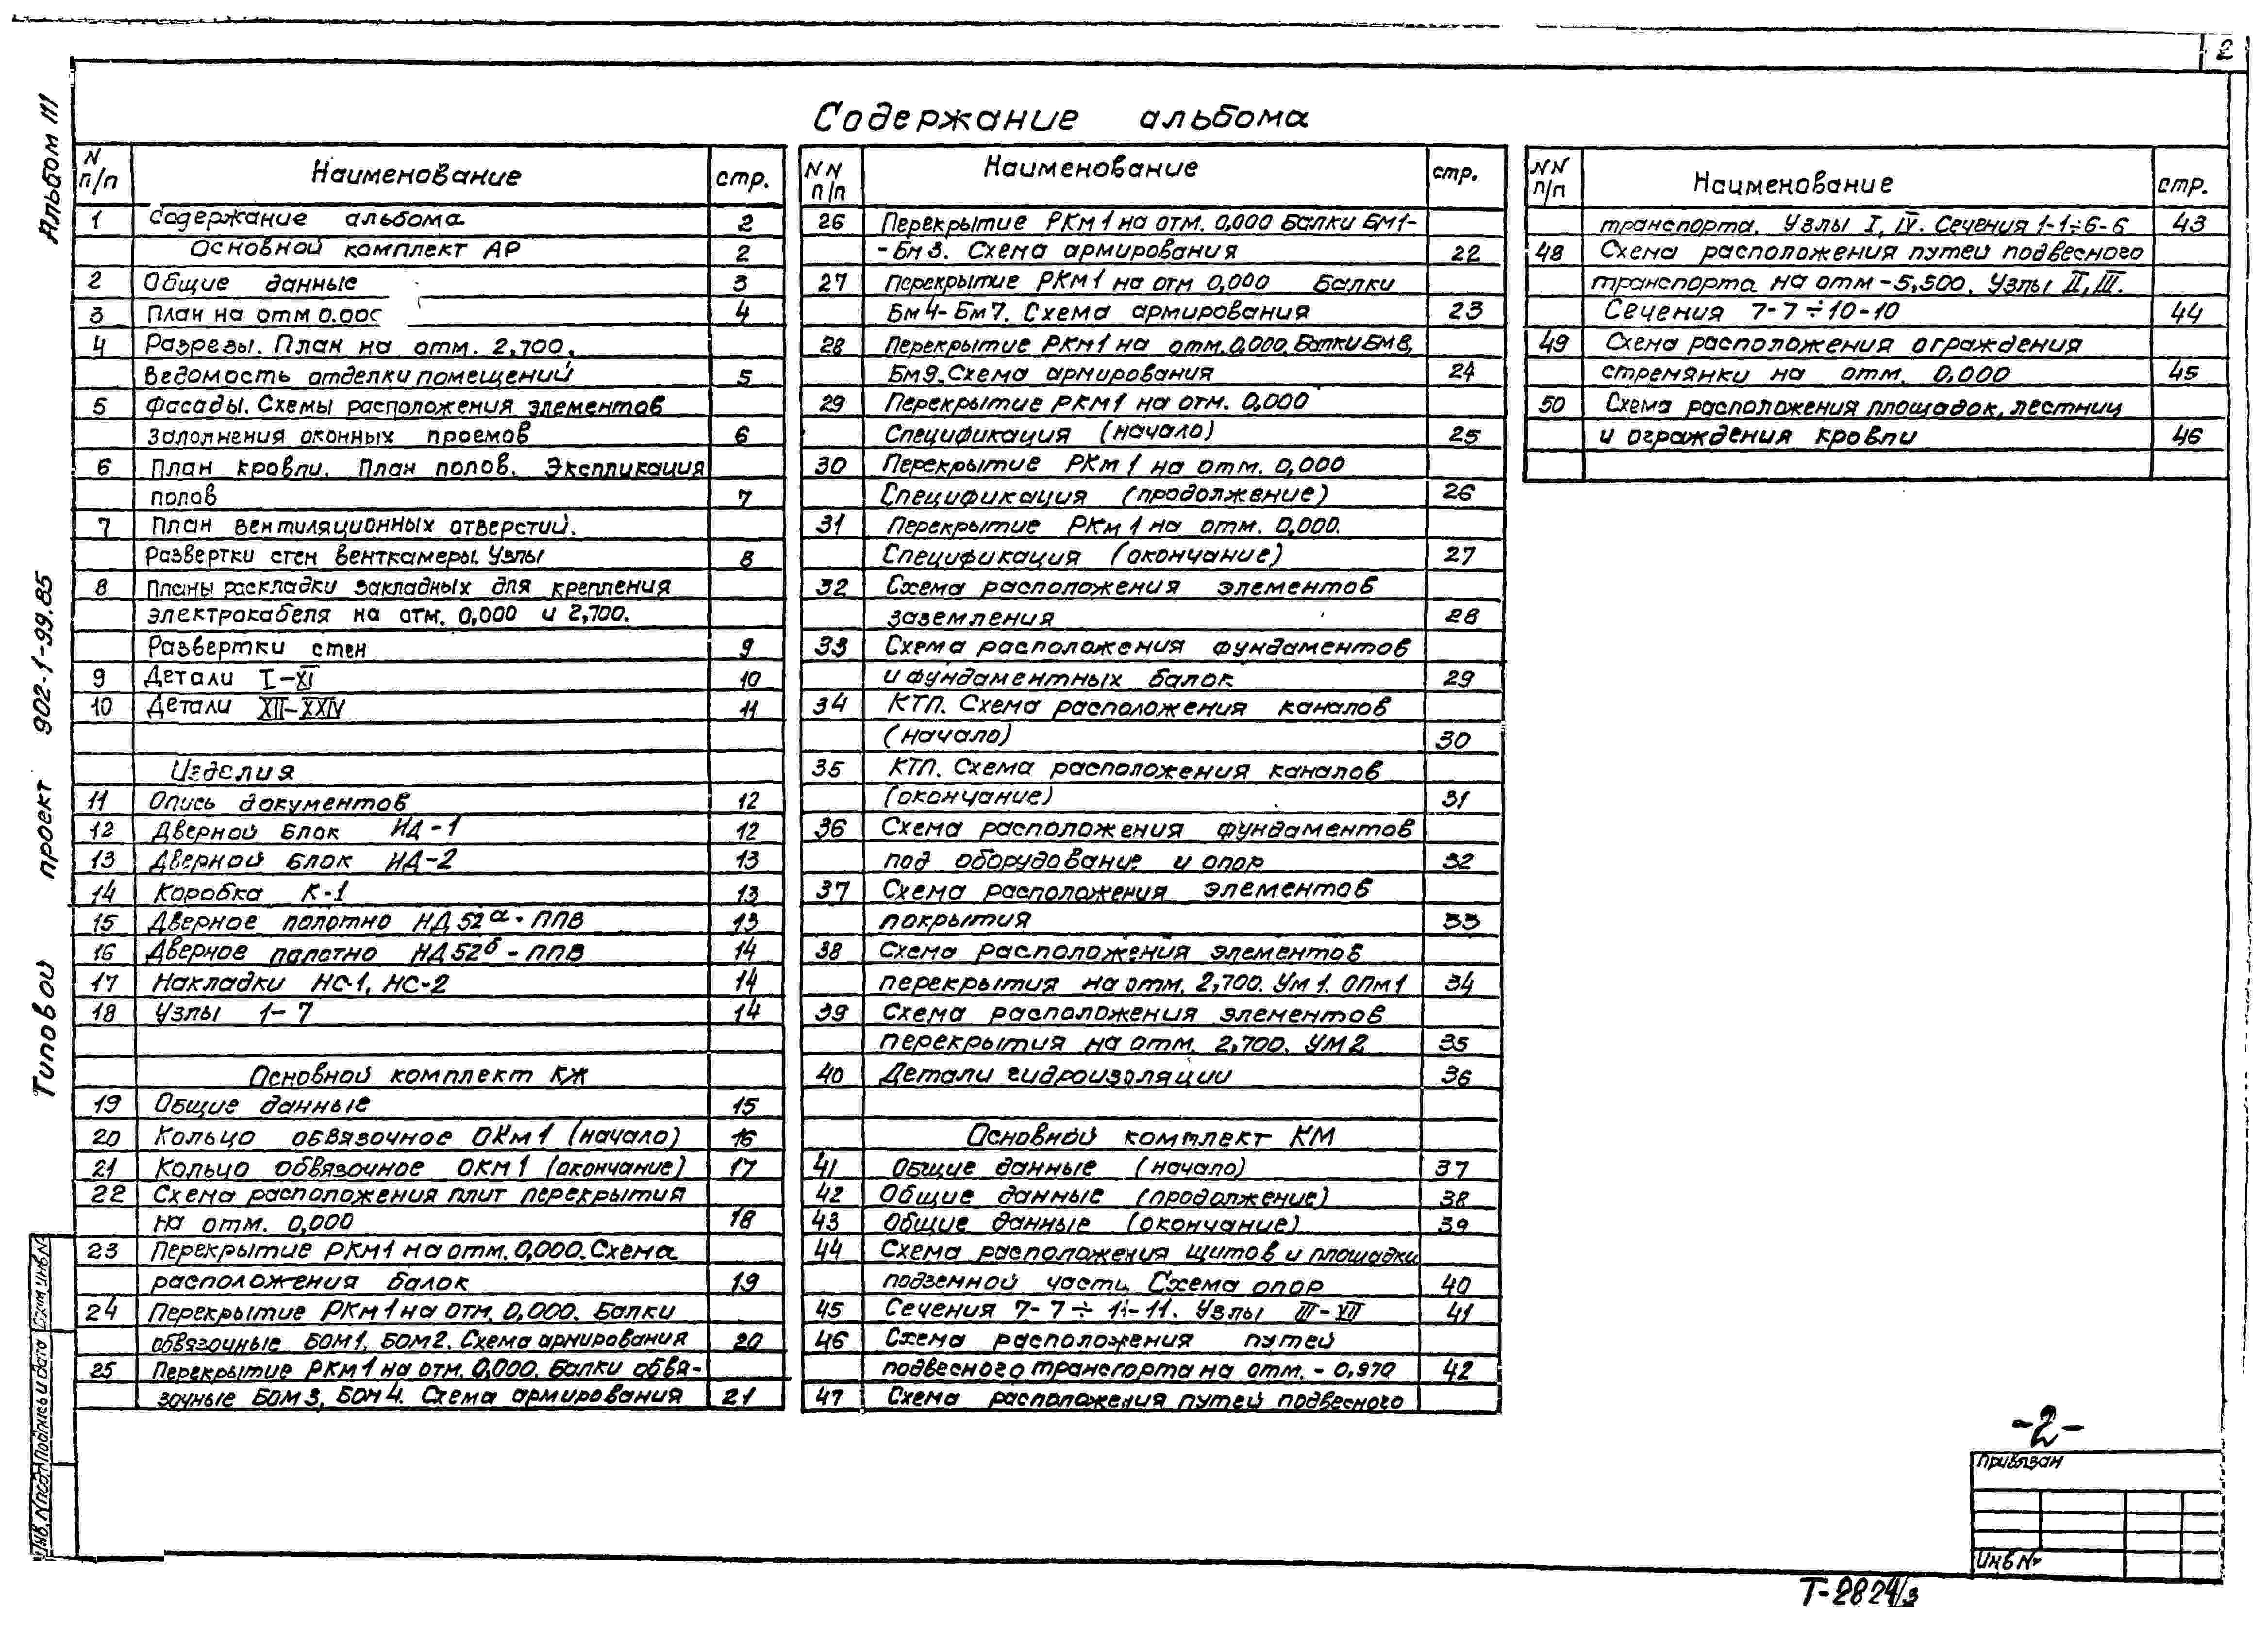 2
Содержание альбома
Альбом III
Типовой проект 902-1-99.85
N п/п Наименование стр.
1 Содержание альбома 2
Основной комплект АР 2
2 Общие данные 3
3 План на отм 0.000 4
4 Разрезы. План на отм. 2,700.
Ведомость отделки помещений 5
5 Фасады. Схемы расположения элементов
заполнения оконных проемов 6
6 План кровли. План полов. Экспликация
полов 7
7 План вентиляционных отверстий.
Развертки стен венткамеры. Узлы 8
8 Планы раскладки закладных для крепления
электрокабеля на отм. 0,000 и 2,700.
Развертки стен 9
9 Детали I-XI 10
10 Детали XII-XXIV 11
Изделия
11 Опись документов 12
12 Дверной блок НД-1 12
13 Дверной блок НД-2 13
14 Коробка К-1 13
15 Дверное полотно НД52а-ППВ 13
16 Дверное полотно НД52б-ППВ 14
17 Накладки НС-1, НС-2 14
18 Узлы 1-7 14
Основной комплект КЖ
19 Общие данные 15
20 Кольцо обвязочное ОКм1 (начало) 16
21 Кольцо обвязочное ОКм1 (окончание) 17
22 Схема расположения плит перекрытия
на отм. 0,000 18
23 Перекрытие РКм1 на отм. 0,000. Схема
расположения балок 19
24 Перекрытие РКм1 на отм. 0,000. Балки
обвязочные БОМ1, БОМ2. Схема армирования 20
25 Перекрытие РКм1 на отм. 0,000. Балки обвя-
зочные БОМ3, БОМ4. Схема армирования 21
NN п/п Наименование стр.
26 Перекрытие РКм1 на отм. 0,000 Балки БМ1-
-Бм3. Схема армирования 22
27 Перекрытие РКм1 на отм 0,000 Балки
Бм4-Бм7. Схема армирования 23
28 Перекрытие РКм1 на отм. 0,000. Балки БМ8,
Бм9. Схема армирования 24
29 Перекрытие РКМ1 на отм. 0,000
Спецификация (начало) 25
30 Перекрытие РКм1 на отм. 0,000
Спецификация (продолжение) 26
31 Перекрытие РКм1 на отм. 0,000.
Спецификация (окончание) 27
32 Схема расположения элементов
заземления 28
33 Схема расположения фундаментов
и фундаментных балок 29
34 КТП. Схема расположения каналов
(начало) 30
35 КТП. Схема расположения каналов
(окончание) 31
36 Схема расположения фундаментов
под оборудование и опор 32
37 Схема расположения элементов
покрытия 33
38 Схема расположения элементов
перекрытия на отм. 2,700. Ум1. ОПм1 34
39 Схема расположения элементов
перекрытия на отм. 2,700. УМ2 35
40 Детали гидроизоляции 36
Основной комплект КМ
41 Общие данные (начало) 37
42 Общие данные (продолжение) 38
43 Общие данные (окончание) 39
44 Схема расположения щитов и площадки
подземной части. Схема опор 40
45 Сечения 7-7÷11-11. Узлы III-VII 41
46 Схема расположения путей
подвесного транспорта на отм. -0,970 42
47 Схема расположения путей подвесного
NN п/п Наименование стр.
транспорта. Узлы I, IV. Сечения 1-1÷6-6 43
48 Схема расположения путей подвесного
транспорта на отм -5,500. Узлы II, III.
Сечения 7-7÷10-10 44
49 Схема расположения ограждения
стремянки на отм. 0,000 45
50 Схема расположения площадок, лестниц
и ограждения кровли 46
-2-
Привязан
Инв №
Т-2824/3
Инв. N подл Подпись и дата Взам инв №